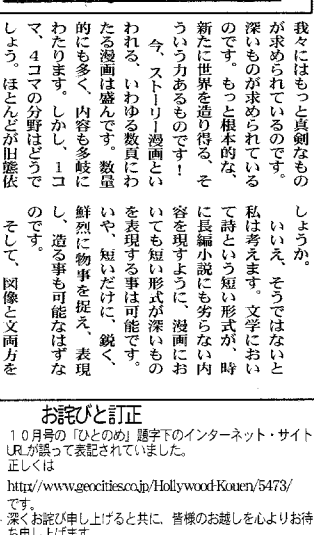 我々にはもっと真剣なもの
が求められているのです。
深いものが求められている
のです。もっと根本的な、
新たに世界を造り得る、そ
ういう力あるものです！
今、ストーリー漫画とい
われる、いわゆる数頁にわ
たる漫画は盛んです。数量
的にも多く、内容も多岐に
わたります。しかし、１コ
マ、４コマの分野はどうで
しょう。ほとんどが旧態依
しょうか。
いいえ、そうではないと
私は考えます。文学におい
て詩という短い形式が、時
に長編小説にも劣らない内
容を現すように、漫画にお
いても短い形式が深いもの
を表現する事は可能です。
いや、短いだけに、鋭く、
鮮烈に物事を捉え、表現
し、造る事も可能なはずな
のです。
そして、図像と文両方を
お詫びと訂正
１０月号の「ひとのめ」題字下のインターネット・サイト
URLが誤って表記されていました。
正しくは
http://www.geocities.co.jp/Hollywood-Kouen/5473/
です。
深くお詫び申し上げると共に、皆様のお越しを心よりお待
ち申し上げます。